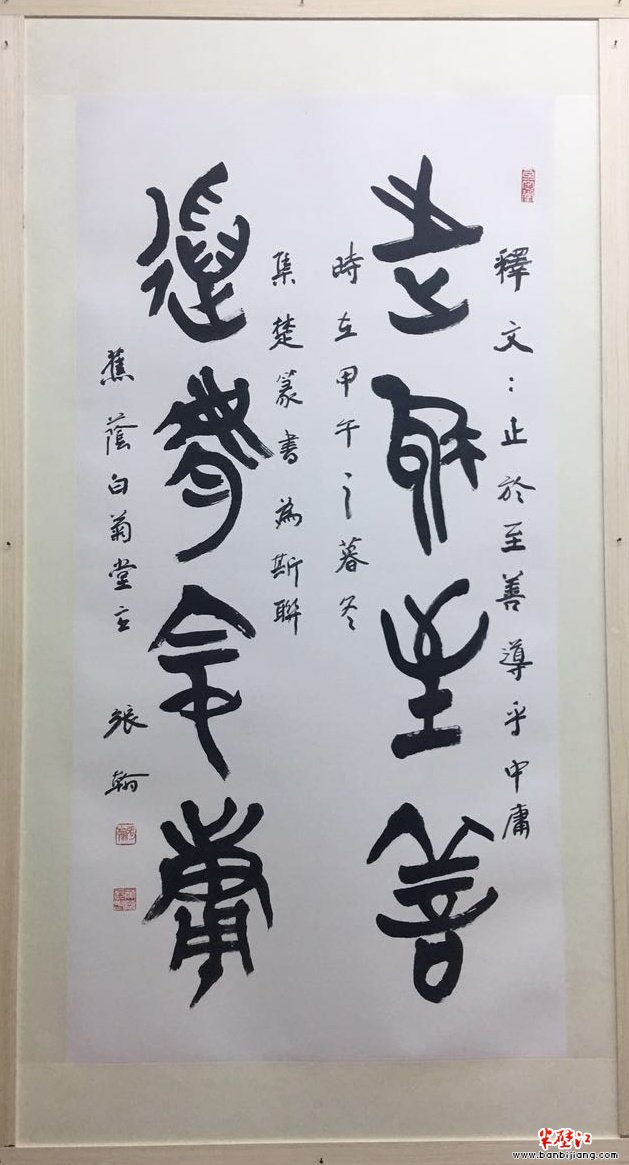 釋文：止於至善導乎中庸
止於至善
時在甲午之暮冬
集楚篆書為斯聯
導乎中庸
蕉蔭白菊堂主 張翰
半壁江
www.banbijiang.com